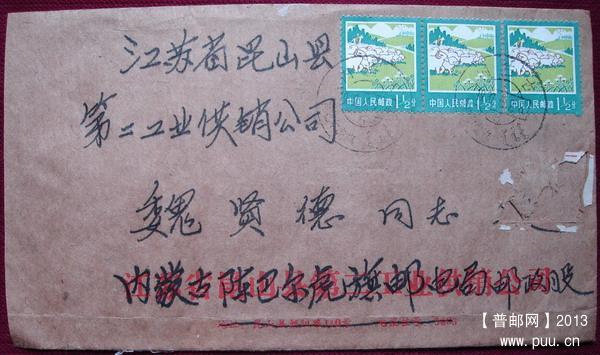 中国人民邮政 1½分
中国人民邮政 1½分
中国人民邮政 1½分
江苏省昆山县
第二工业供销公司
魏贤德 同志
内蒙古陈巴尔虎旗邮电局邮政股
【普邮网】2013
www.puu.cn